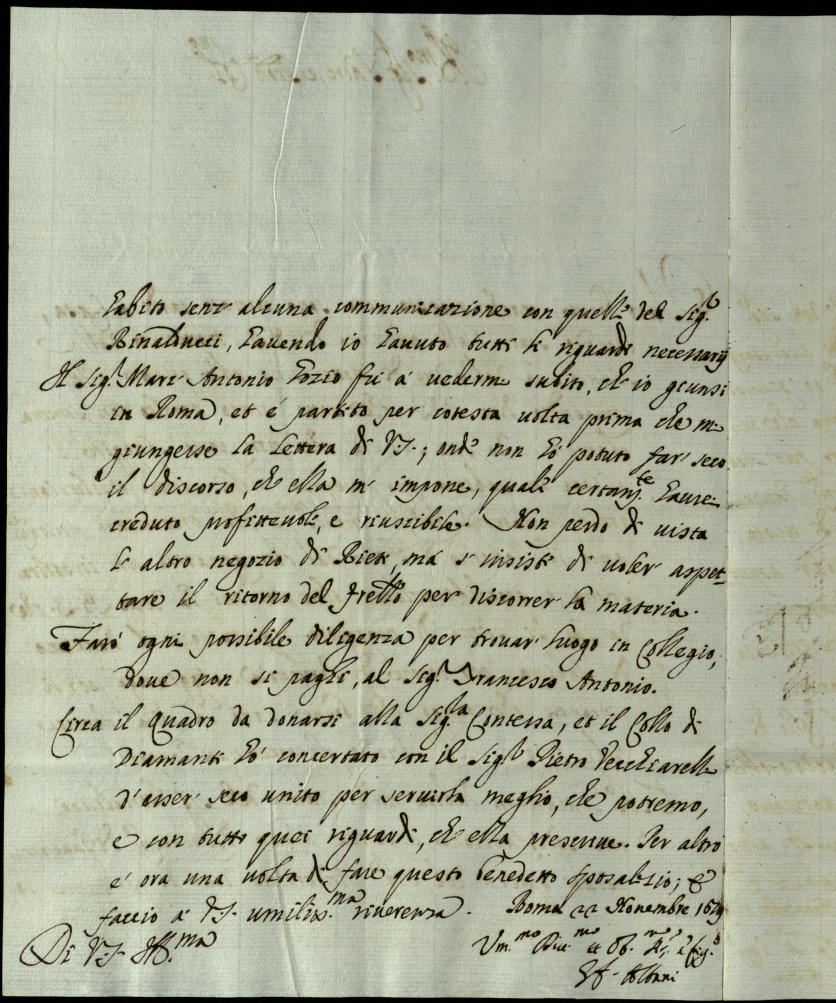 habito senz' alcuna communicazione con quelle del Sig.r
Rinalducci, havendo io havuto tutti li riguardi necessarij
Il Sig.r Marc' Antonio fozio fù à vedermi subito, ch' io giunsi
in Roma, et è partito per cotesta volta prima che mi
giungesse la lettera di VS.; onde non hò potuto far seco
il discorso, ch' ella m' impone, quale certam.te havrei
creduto profittevole, e riuscibile. Non perdo di vista
l' altro negozio di Rieti, mà s' insiste di voler aspet-
tare il ritorno del frello per discorrer la materia.
Farò ogni possibile diligenza per trovar luogo in Collegio,
dove non si paghi, al Sig.r Francesco Antonio.
Circa il Quadro da donarsi alla Sig.ra Contessa, et il Collo di
Diamanti hò concertato con il Sig.r Pietro Vecchiarelli
d' esser seco unito per servirla meglio, che potremo,
e con tutti quei riguardi, ch' ella prescrive. Per altro
è ora una volta di fare questo benedetto sposalizio; &
faccio à VS. umiliss.ma riverenza. Roma 22 Novembre
Di VS. Ill.ma
Um.mo Div.mo et Ob.mo
Albani